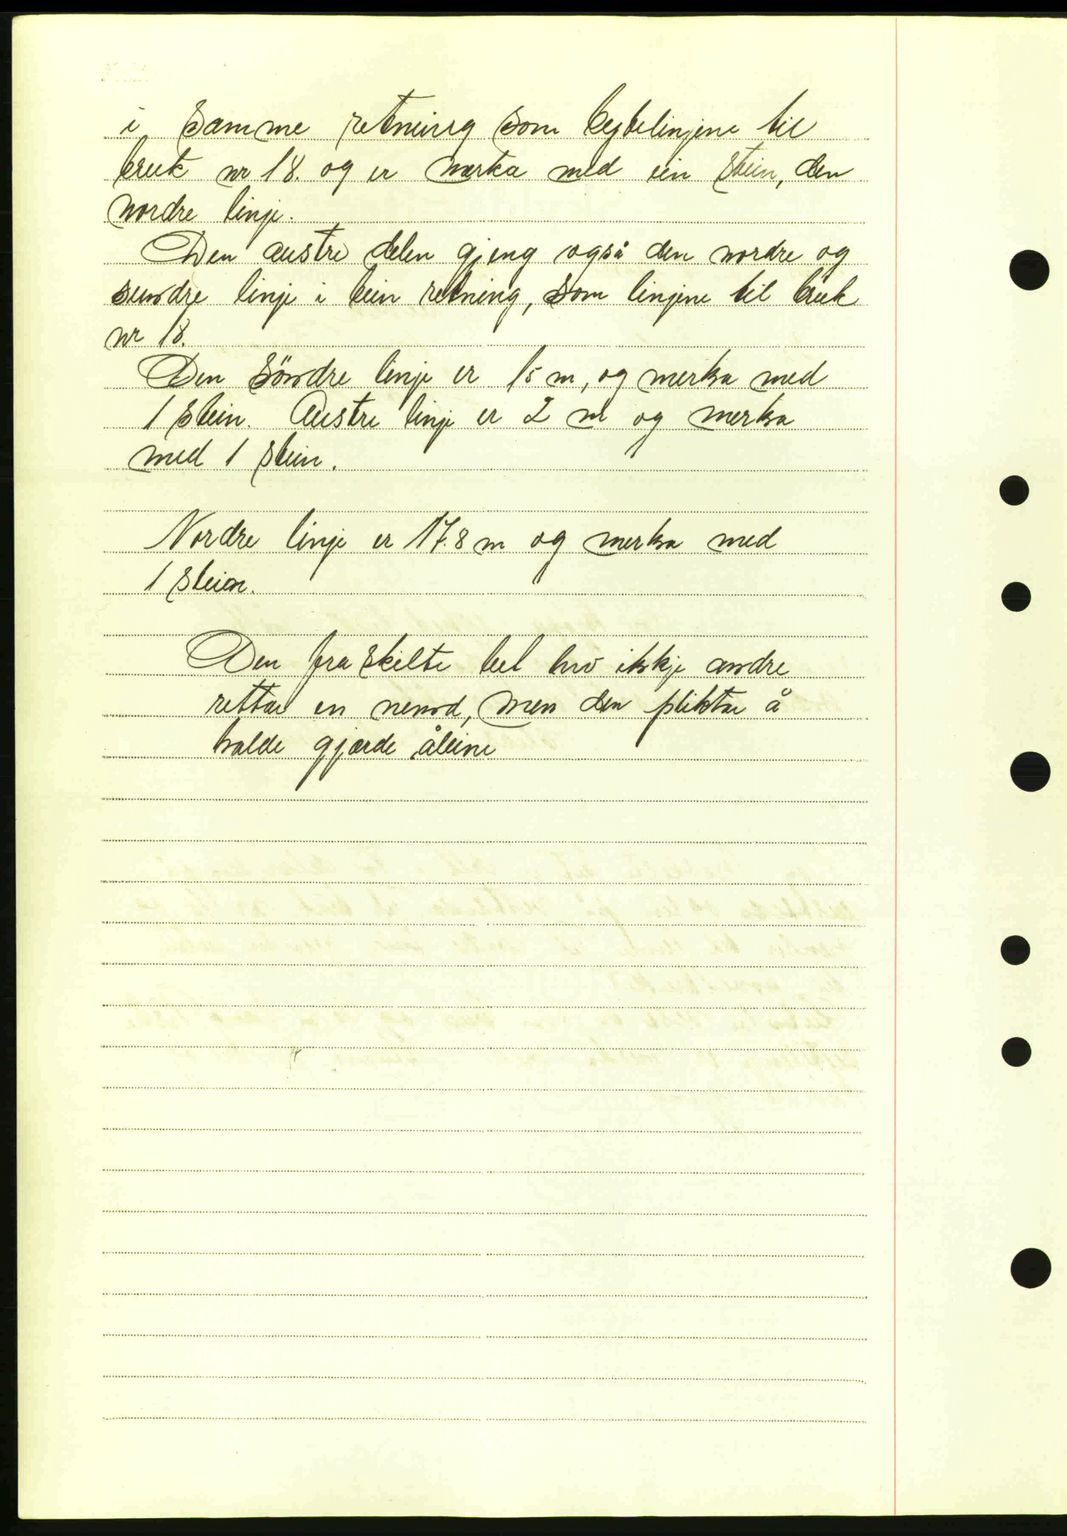 i samme retning som bytelinjene til
bruk nr 18. og er merka med ein stein, den
nordre linje.
Den austre delen gjeng også den nordre og
sundre linje i bein retning, som linjene til bruk
nr 18.
Den söndre linje er 15 m, og merka med
1 stein. Austre linje er 2 m og merka
med 1 stein.
Nordre linje er 17.8 m og merka med
1 stein.
Den fra skilte del hev ikkje andre
rettar en nemd, men den pliktar å
halde gjærde åleine